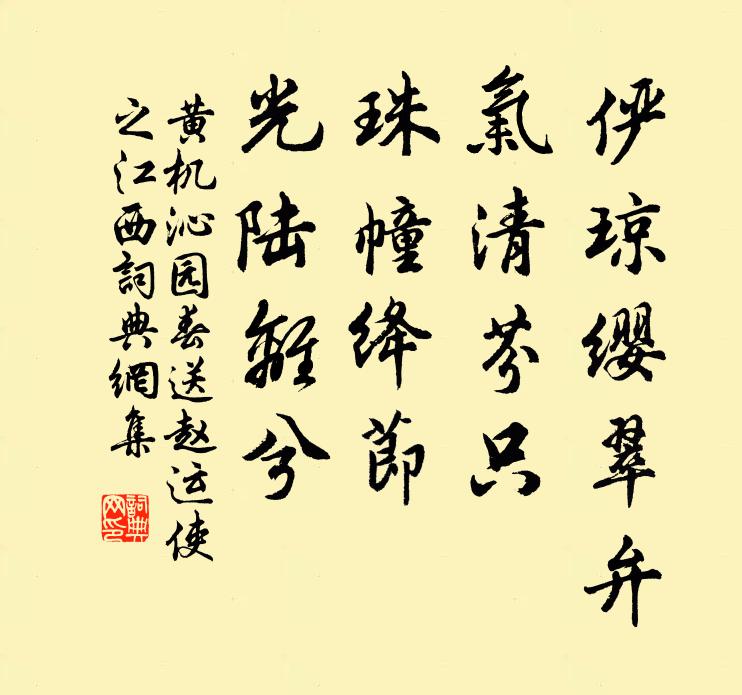 俨琼缨翠弁
氣清芬只
珠幢绛節
光陆離兮
黄机沁园春送赵运使
之江西詞典網集
詞典网印